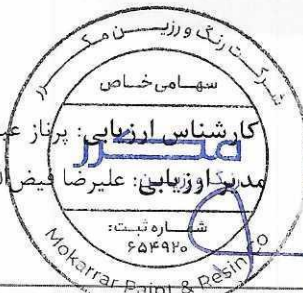 شرکت رنگ و رزین مکرر
سهامی خاص
کارشناس ارزیابی: پرناز
مکرر
مدیر ارزیابی: علیرضا
شماره ثبت:
۶۵۴۹۲۰
Mokarrar Paint & Resin Co